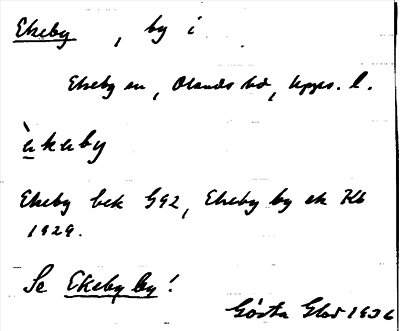 Ekeby , by i
Ekeby sn, Olands hd, Upps. l.
ề̀kaby
Ekeby bek G92, Ekeby by ek Kb
1929.
Se Ekeby by!
Gösta Glad 1936